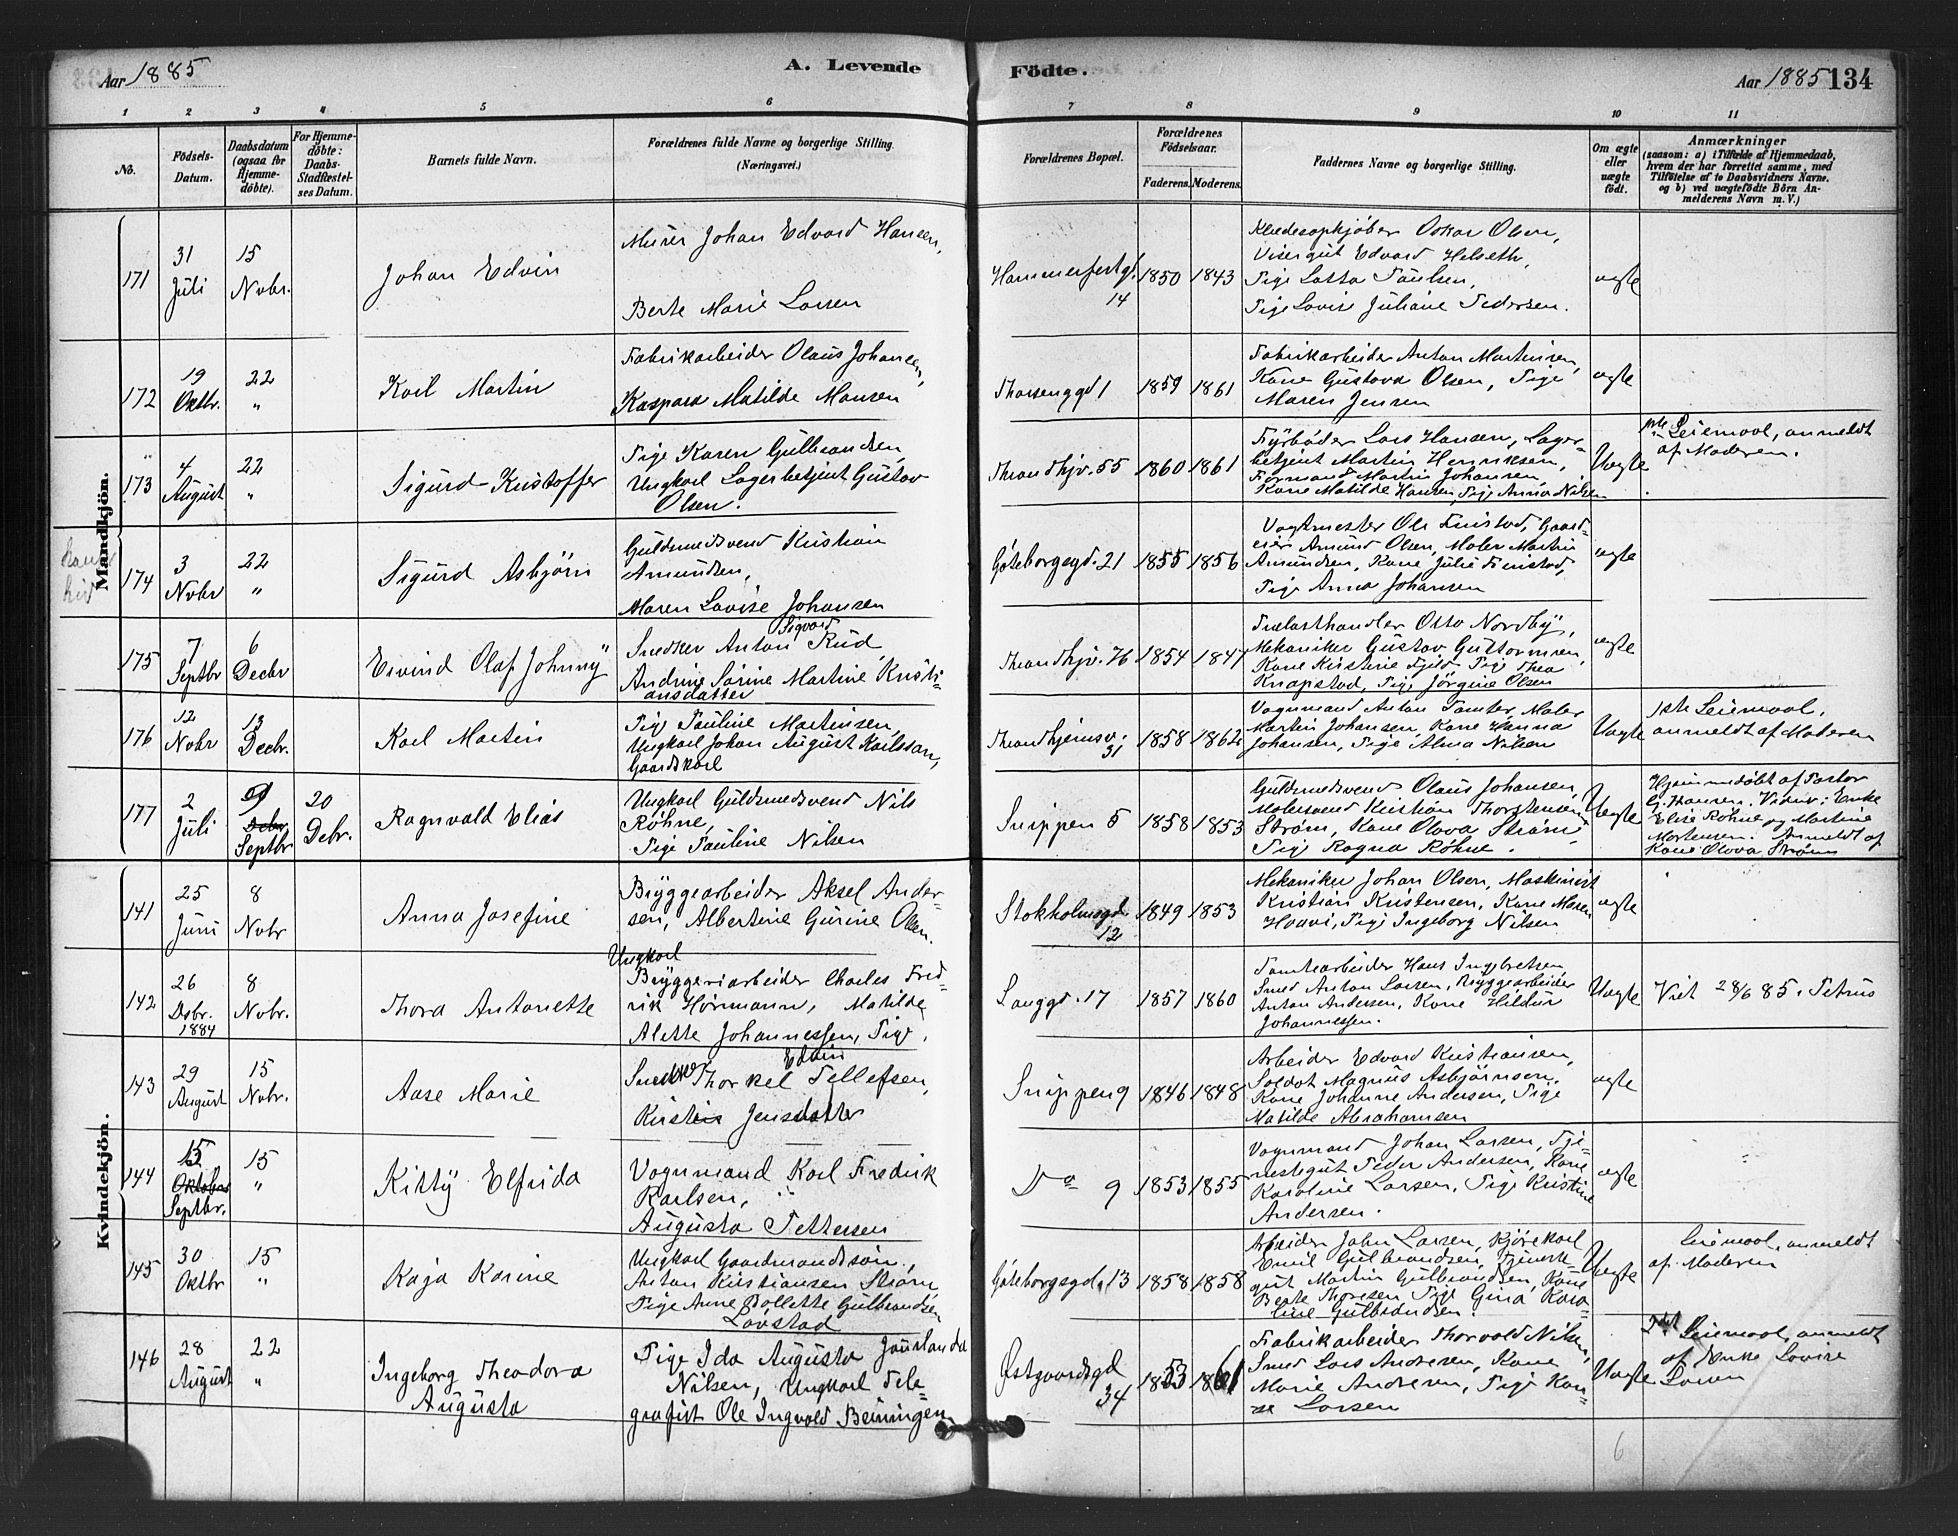 Aar 1885
A. Levende
Födte.
Aar 1885 134
1 2 3 4 5 6 7 8 9 10 11
No.
Födsels-
Datum.
Daabsdatum
(ogsaa for
Hjemme-
döbte).
For Hjemme-
döbte:
Daabs-
Stadfæstel-
ses Datum.
Barnets fulde Navn.
Forældrenes fulde Navne og borgerlige Stilling.
(Næringsvei.)
Forældrenes Bopæl.
Forældrenes
Födselsaar.
Faderens. Moderens.
Faddernes Navne og borgerlige Stilling.
Om ægte
eller
uægte
födt.
Anmærkninger
(saasom: a) i Tilfælde af Hjemmedaab,
hvem der har forrettet samme, med
Tilföielse af to Daabsvidners Navne.
og b) ved uægtefödte Börn An-
melderens Navn m. V.)
Mandkjön.
171
31
Juli
15
Novbr.
Johan Edvin
Murer Johan Edvard Hansen,
Berte Marie Larsen
Hammerfestgd.
14
1850
1843
Klædesopkjøber Oskar Olsen,
Visergut Edvard Helseth,
Pige Lotta Paulsen,
Pige Lovis Juliane Pedersen.
ægte
172
19
Oktbr.
22
"
Karl Martin
Fabrikarbeider Olaus Johansen,
Kaspara Matilde Hansen
Thorsenggd 1
1859
1861
Fabrikarbeider Anton Martinsen,
Kone Gustava Olsen, Pige
Maren Jensen
ægte
173
4
August
22
"
Sigurd Kristoffer
Pige Karen Gulbrandsen,
Ungkarl Lagerbetjent Gustav
Olsen.
Throndhjv. 55
1860
1861
Fyrbøder Lars Hansen, Lager-
betjent Martin Henriksen,
Formand Martin Johansen,
Kone Matilde Hansen, Pige Anna Nilsen
Uægte
Leiermaal, anmeldt
af Moderen.
174
3
Novbr
22
"
Sigurd Asbjørn
Guldsmedsvend Kristian
Amundsen,
Maren Lovise Johansen
Göteborgsgd. 21
1855
1856
Vagtmester Ole Finstad, Gaard-
eier Amund Olsen, Maler Martin
Amundsen, Kone Julie Finstad,
Pige Anna Johansen
ægte
175
7
Septbr
6
Decbr
Eivind Olaf Johnny
Sigvard
Snedker Anton Rud,
Andrine Sörine Martine Kristi-
ansdatter
Throndhjv. 76
1854
1847
Trælasthandler Otto Nordby,
Mekaniker Gustav Guttormsen,
Kone Kristine Fjeld, Pige Thea
Knapstad, Pige Jörgine Olsen
ægte
176
12
Novbr
13
Decbr.
Karl Martin
Pige Pauline Martinsen,
Ungkarl Johan August Karlsson,
Gaardskarl
Throndhjemsv.
31
1858
1862
Vognmand Anton Tomter, Maler
Martin Johansen, Kone Hanna
Johansen, Pige Alma Nilsen
Uægte
1ste Leiermaal,
anmeldt af Moderen
177
2
Juli
Septbr
20
Debr.
Ragnvald Elias
Ungkarl Guldsmedsvend Nils
Røhne,
Pige Pauline Nilsen
Snippen 5
1858
1853
Guldsmedsvend Olaus Johansen,
Malersvend Kristian Thorstensen
Strøm, Kone Olava Strøm,
Pige Ragna Røhne.
Uægte
Hjemmedøbt af Pastor
G. Hansen. Vidner: Enke
Elise Røhne og Martine
Mortensen. Anmeldt af
Kone Olava Strøm
Kvindekjön.
141
25
Juni
8
Novbr
Anna Josefine
Bryggearbeider Aksel Ander-
sen, Albertine Gurine Olsen.
Stokholmsgd
12
1849
1853
Mekaniker Johan Olsen, Maskinist
Kristian Kristensen, Kone Maren
Hovvi, Pige Ingeborg Nilsen
ægte
142
26
Dsbr.
1884
8
Novbr.
Thora Antonette
Ungkarl
Bryggeriarbeider Charles Fred-
rik Hørmann, Matilde
Alette Johannessen, Pige.
Langgd. 17
1857
1860
Tomtearbeider Hans Ingebretsen
Smed Anton Larsen, Bryggearbeider
Anton Andersen, Kone Hildur
Johannessen.
Uægte
Viet 28/6 85. Petrus
143
29
August
15
Novbr.
Aase Marie
Edvin
Snedker Thorkel Tellefsen,
Kirstin Jensdatter
Snippen 9
1846
1848
Arbeider Edvard Kristiansen,
Soldat Magnus Asbjørnsen,
Kone Johanne Andersen, Pige
Matilde Abrahamsen
ægte
144
15
Oktober
Septbr.
15
"
Kitty Elfrida
Vognmand Karl Fredrik
Karlsen,
Augusta Pettersen
Do 9
1853
1855
Vognmand Johan Larsen, Tje-
nestegut Peder Andersen, Kone
Karoline Larsen, Pige Kristine
Andersen.
ægte
145
30
Oktbr
15
"
Kaja Karine
Ungkarl Gaardmandssøn,
Anton Kristiansen Strøm,
Pige Anne Bollette Gulbrandsen
Lövstad
Göteborgsgd. 13
1858
1858
Arbeider John Larsen, Kjørekarl
Emil Gulbrandsen, Tjeneste-
gut Martin Gulbrandsen, Kone
Berte Thoresen, Pige Gina Karo-
line Gulbrandsen.
Uægte
Leiermaal, anmeldt
af Moderen
146
28
August
22
"
Ingeborg Theodora
Augusta
Pige Ida Augusta
Nilsen, Ungkarl Tele-
grafist Ole Ingvald Beiningen
Østgaardsgd
34
1853
1861
Fabrikarbeider Thorvald Nilsen,
Smed Lars Andersen, Kone
Marie Andersen, Pige Kari-
ne Larsen
Uægte
Leiermaal, anmeldt
af Enke Lovise
Larsen
6